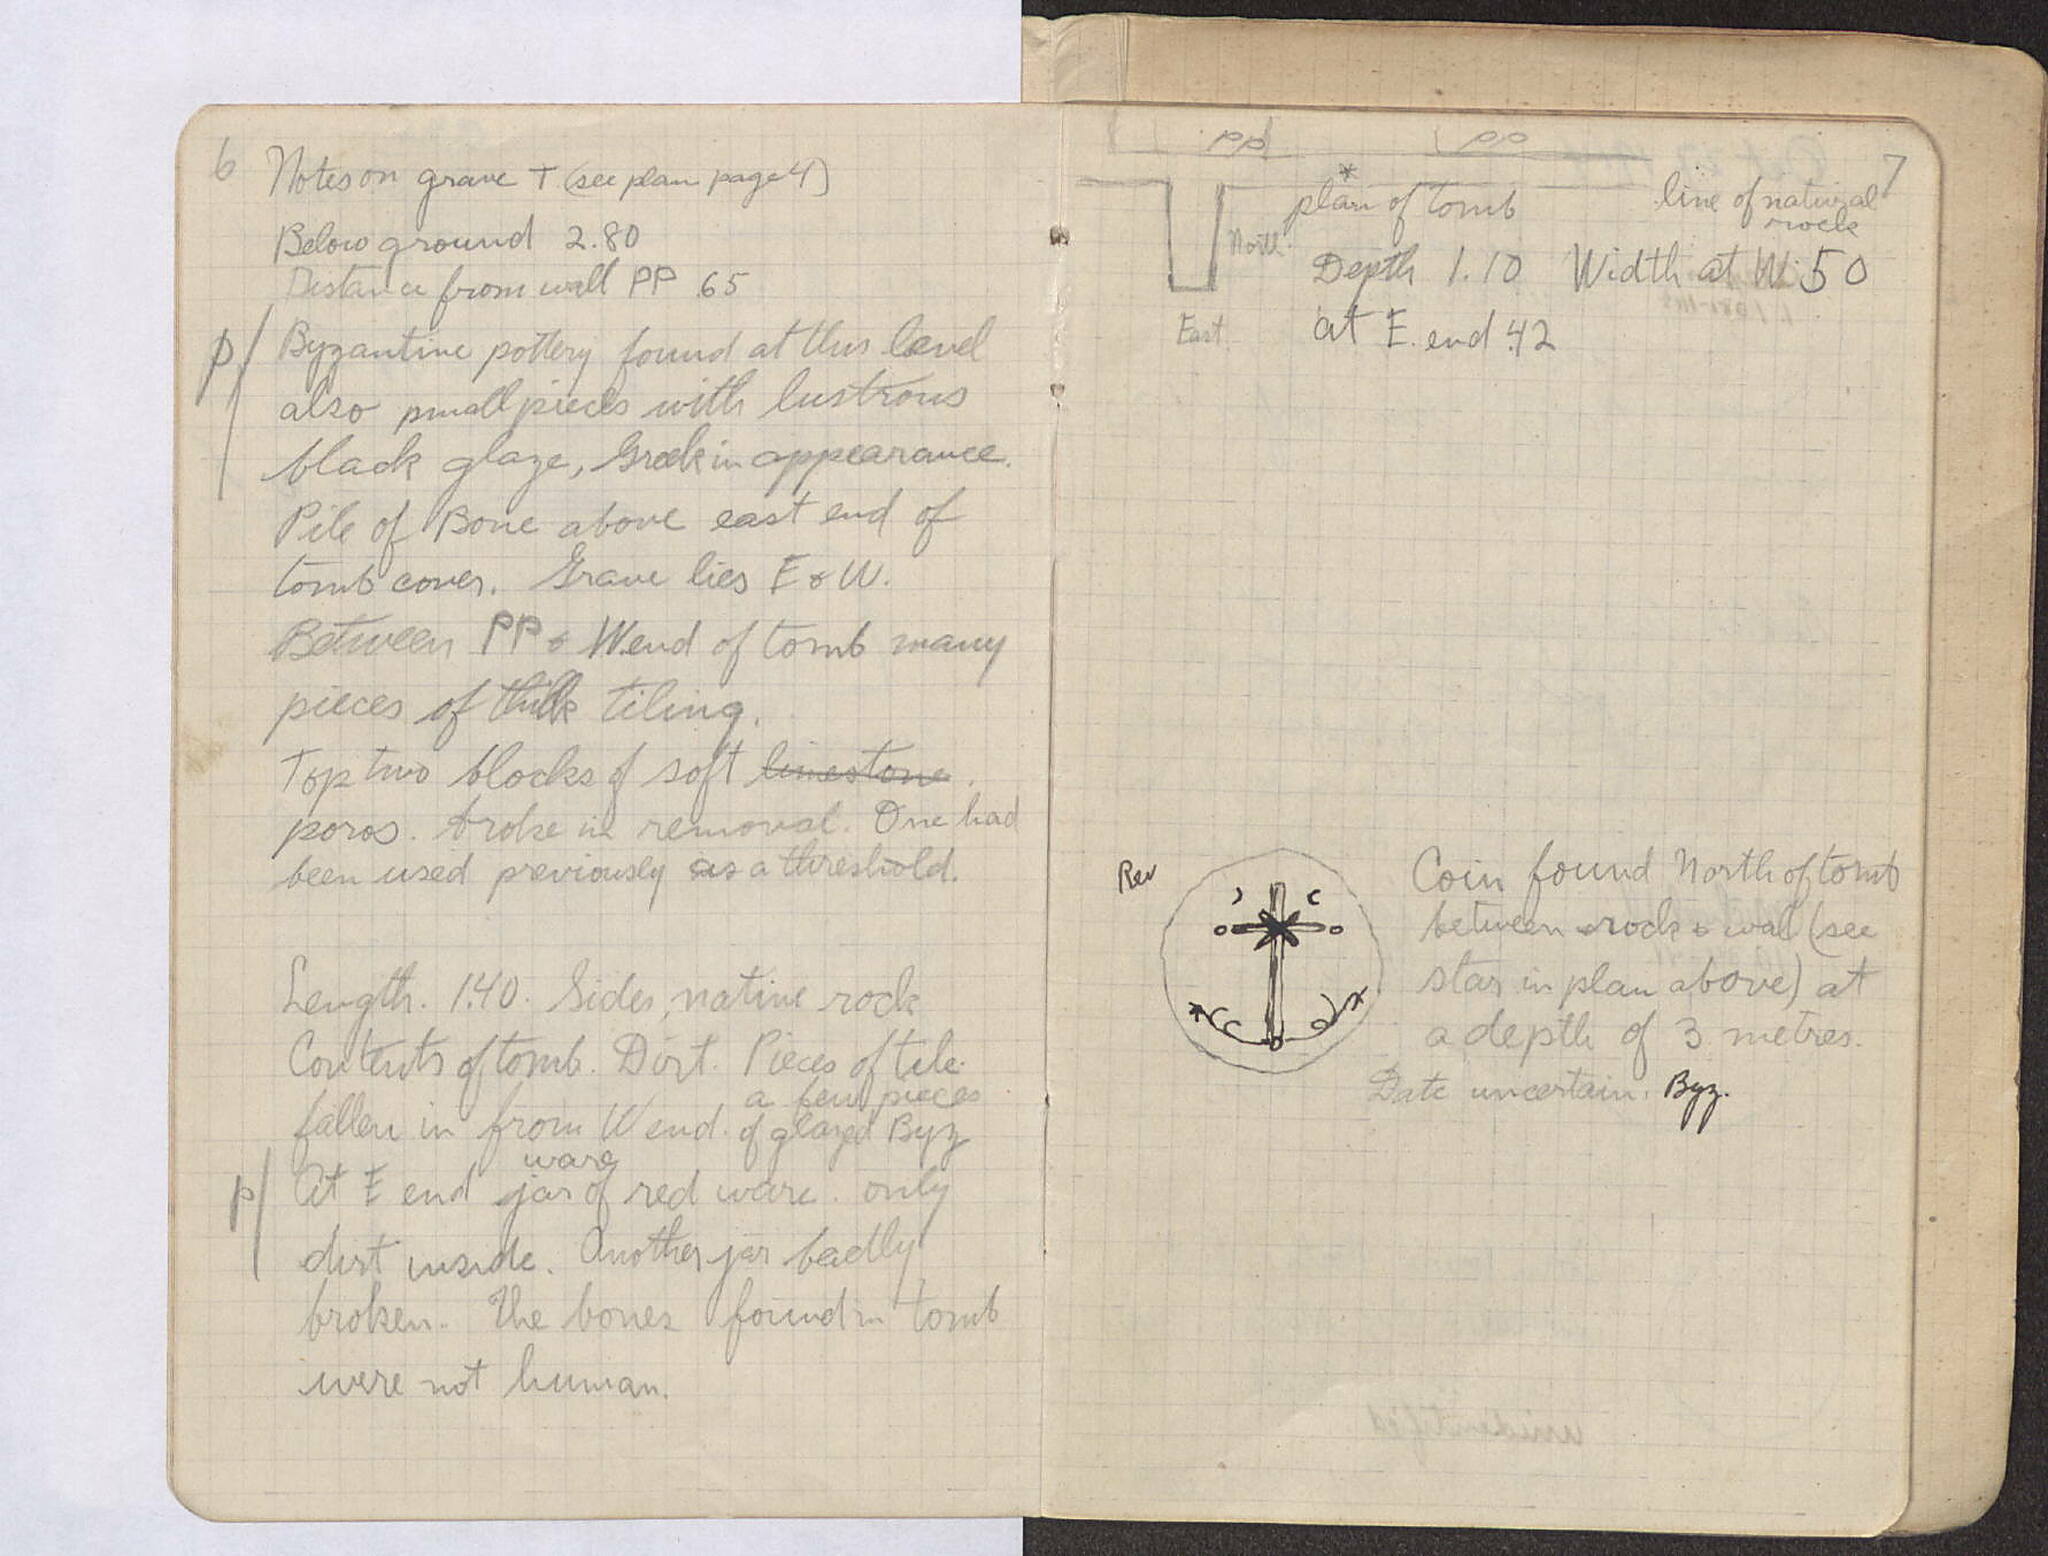 6
Notes on grave T (see plan page 4)
Below ground 2.80
Distance from wall PP .65
p/ Byzantine pottery found at this level
also small pieces with lustrous
black glaze, Greek in appearance.
Pile of Bone above east end of
tomb cover. Grave lies E & W.
Between PP & W end of tomb many
pieces of thick tiling.
Top two blocks of soft limestone.
poros. broke in removal. One had
been used previously as a threshold.
Length. 1.40. Sides, native rock
Contents of tomb. Dirt. Pieces of tile
fallen in from W end. a few pieces
of glazed Byz
ware
p/ At E end jar of red ware. only
dirt inside. Another jar badly
broken. The bones found in tomb
were not human.
7
PP PP
*
plan of tomb
line of natural
rock
North
East
Depth 1.10 Width at W .50
at E. end .42
Rev
Coin found North of tomb
between rock & wall (see
star in plan above) at
a depth of 3 metres.
Date uncertain. Byz.